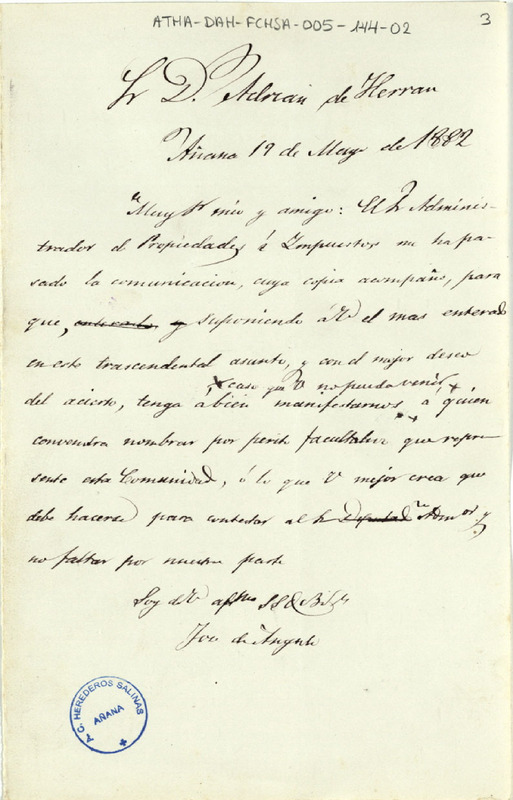 ATHA-DAH-FCHSA-005-144-02
3
Sr D. Adrian de Herran
Añana 19 de Mayo de 1882
Muy Sr mio y amigo: El Sr Adminis-
trador de Propiedades é Impuestos me ha pa-
sado la comunicacion, cuya copia acompaño, para
que, enterado y suponiendo á V. el mas enterado
en este trascendental asunto, y con el mejor deseo
caso que V no pueda venir
del acierto, tenga á bien manifestarnos á quien
convendra nombrar por perito facultativo que repre-
sente esta Comunidad, ó lo que V mejor crea que
debe hacerse para contestar al Sr Diputado Admor y
no faltar por nuestra parte
Soy de V afmo SS Q B S M
de
A. C. HEREDEROS SALINAS
AÑANA